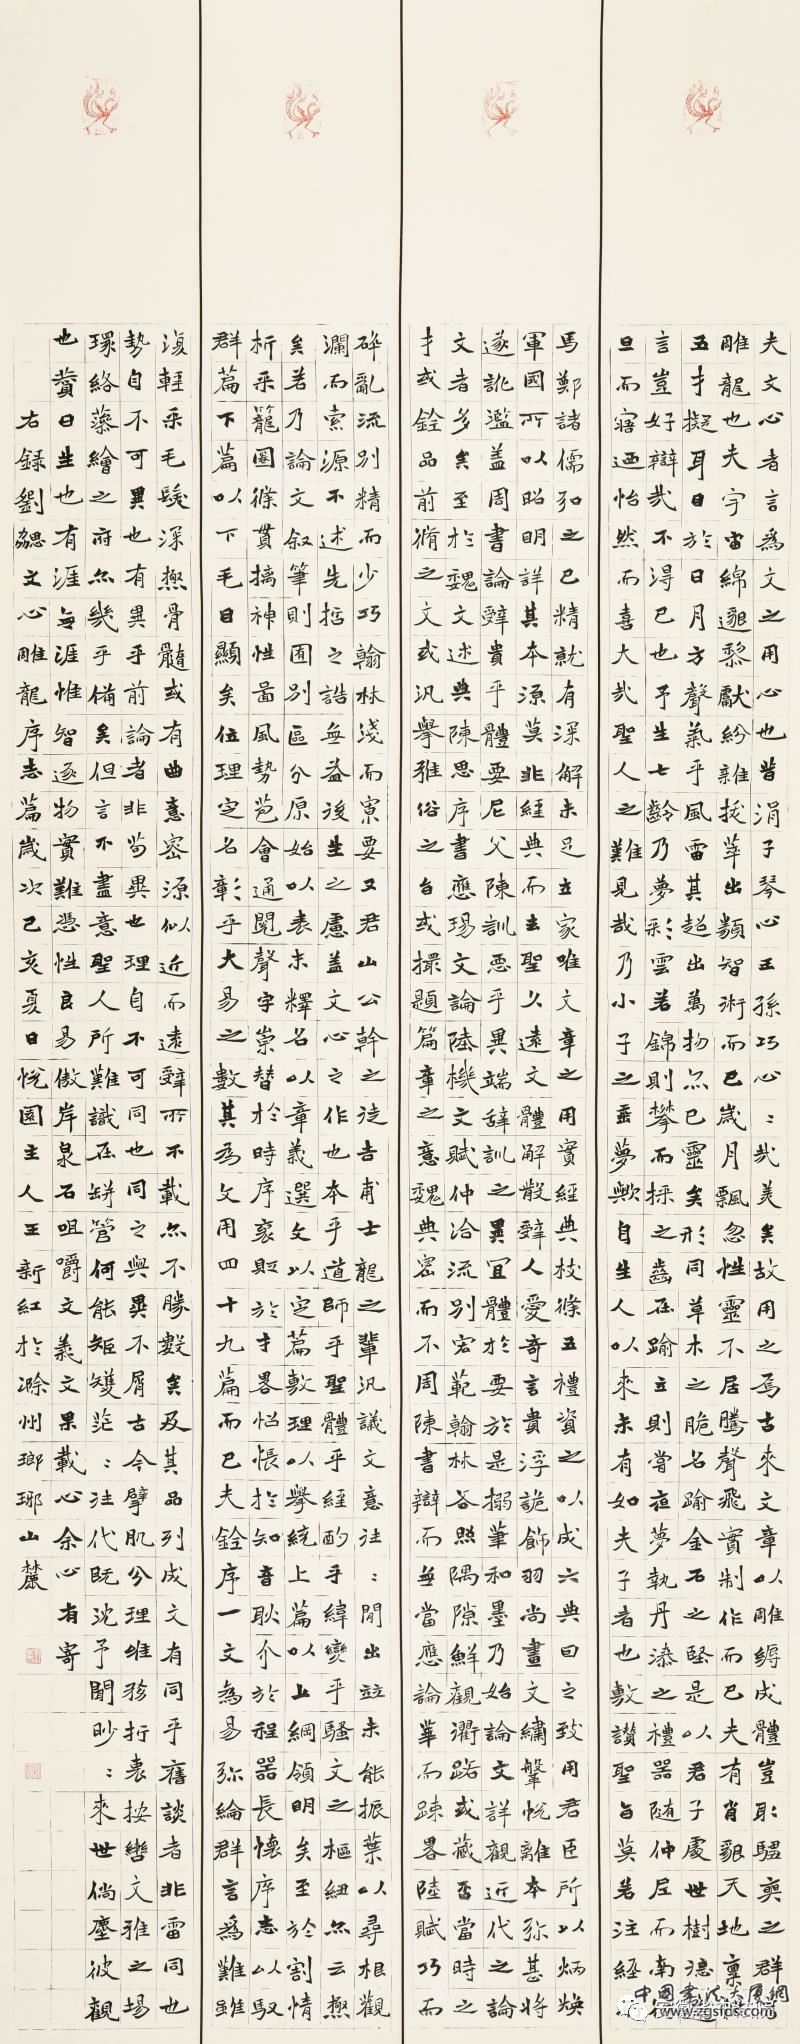 夫文心者言為文之用心也昔涓子琴心王孫巧心〻哉美矣故用之焉古來文章以雕縟成體豈取騶奭之群
雕龍也夫宇宙綿邈黎獻紛雜拔萃出類智術而已歲月飄忽性靈不居騰聲飛實制作而已夫有肖貌天地稟
五才擬耳目於日月方聲氣乎風雷其超出萬物亦已靈矣形同草木之脆名踰金石之堅是以君子處世樹德
言豈好辯哉不得已也予生七齡乃夢彩雲若錦則攀而採之齒在踰立則嘗夜夢執丹漆之禮器隨仲尼而南
旦而寤迺怡然而喜大哉聖人之難見哉乃小子之垂夢歟自生人以來未有如夫子者也敷讚聖旨莫若注經
馬鄭諸儒弘之已精就有深解未足立家唯文章之用實經典枝條五禮資之以成六典因之致用君臣所以炳煥
軍國所以昭明詳其本源莫非經典而去聖久遠文體解散辭人愛奇言貴浮詭飾羽尚畫文繡鞶帨離本彌甚將
遂訛濫蓋周書論辭貴乎體要尼父陳訓惡乎異端辭訓之異宜體於要於是搦筆和墨乃始論文詳觀近代之論
文者多矣至於魏文述典陳思序書應瑒文論陸機文賦仲洽流別宏範翰林各照隅隙鮮觀衢路或臧否當時之
才或銓品前脩之文或汎舉雅俗之旨或撮題篇章之意魏典密而不周陳書辯而無當應論華而疎略陸賦巧而
碎亂流別精而少巧翰林淺而寡要又君山公幹之徒吉甫士龍之輩汎議文意往〻閒出竝未能振葉以尋根觀
瀾而索源不述先哲之誥無益後生之慮蓋文心之作也本乎道師乎聖體乎經酌乎緯變乎騷文之樞紐亦云極
矣若乃論文敘筆則囿別區分原始以表末釋名以章義選文以定篇敷理以舉統上篇以上綱領明矣至於割情
析采籠圈條貫摛神性圖風勢苞會通閱聲字崇替於時序褒貶於才略怊悵於知音耿介於程器長懷序志以馭
群篇下篇以下毛目顯矣位理定名彰乎大易之數其為文用四十九篇而已夫銓序一文為易彌綸群言為難雖
復輕采毛髮深極骨髓或有曲意密源似近而遠辭所不載亦不勝數矣及其品列成文有同乎舊談者非雷同也
勢自不可異也有異乎前論者非苟異也理自不可同也同之與異不屑古今擘肌分理唯務折衷按轡文雅之場
環絡藻繪之府亦幾乎備矣但言不盡意聖人所難識在缾管何能矩矱茫〻往代既沈予聞眇〻來世倘塵彼觀
也贊曰生也有涯無涯惟智逐物實難憑性良易傲岸泉石咀嚼文義文果載心余心有寄
右錄劉勰文心雕龍序志篇歲次己亥夏日悅園主人王新紅於滁州瑯琊山麓
中國書法大展網
www.zgsfps.com